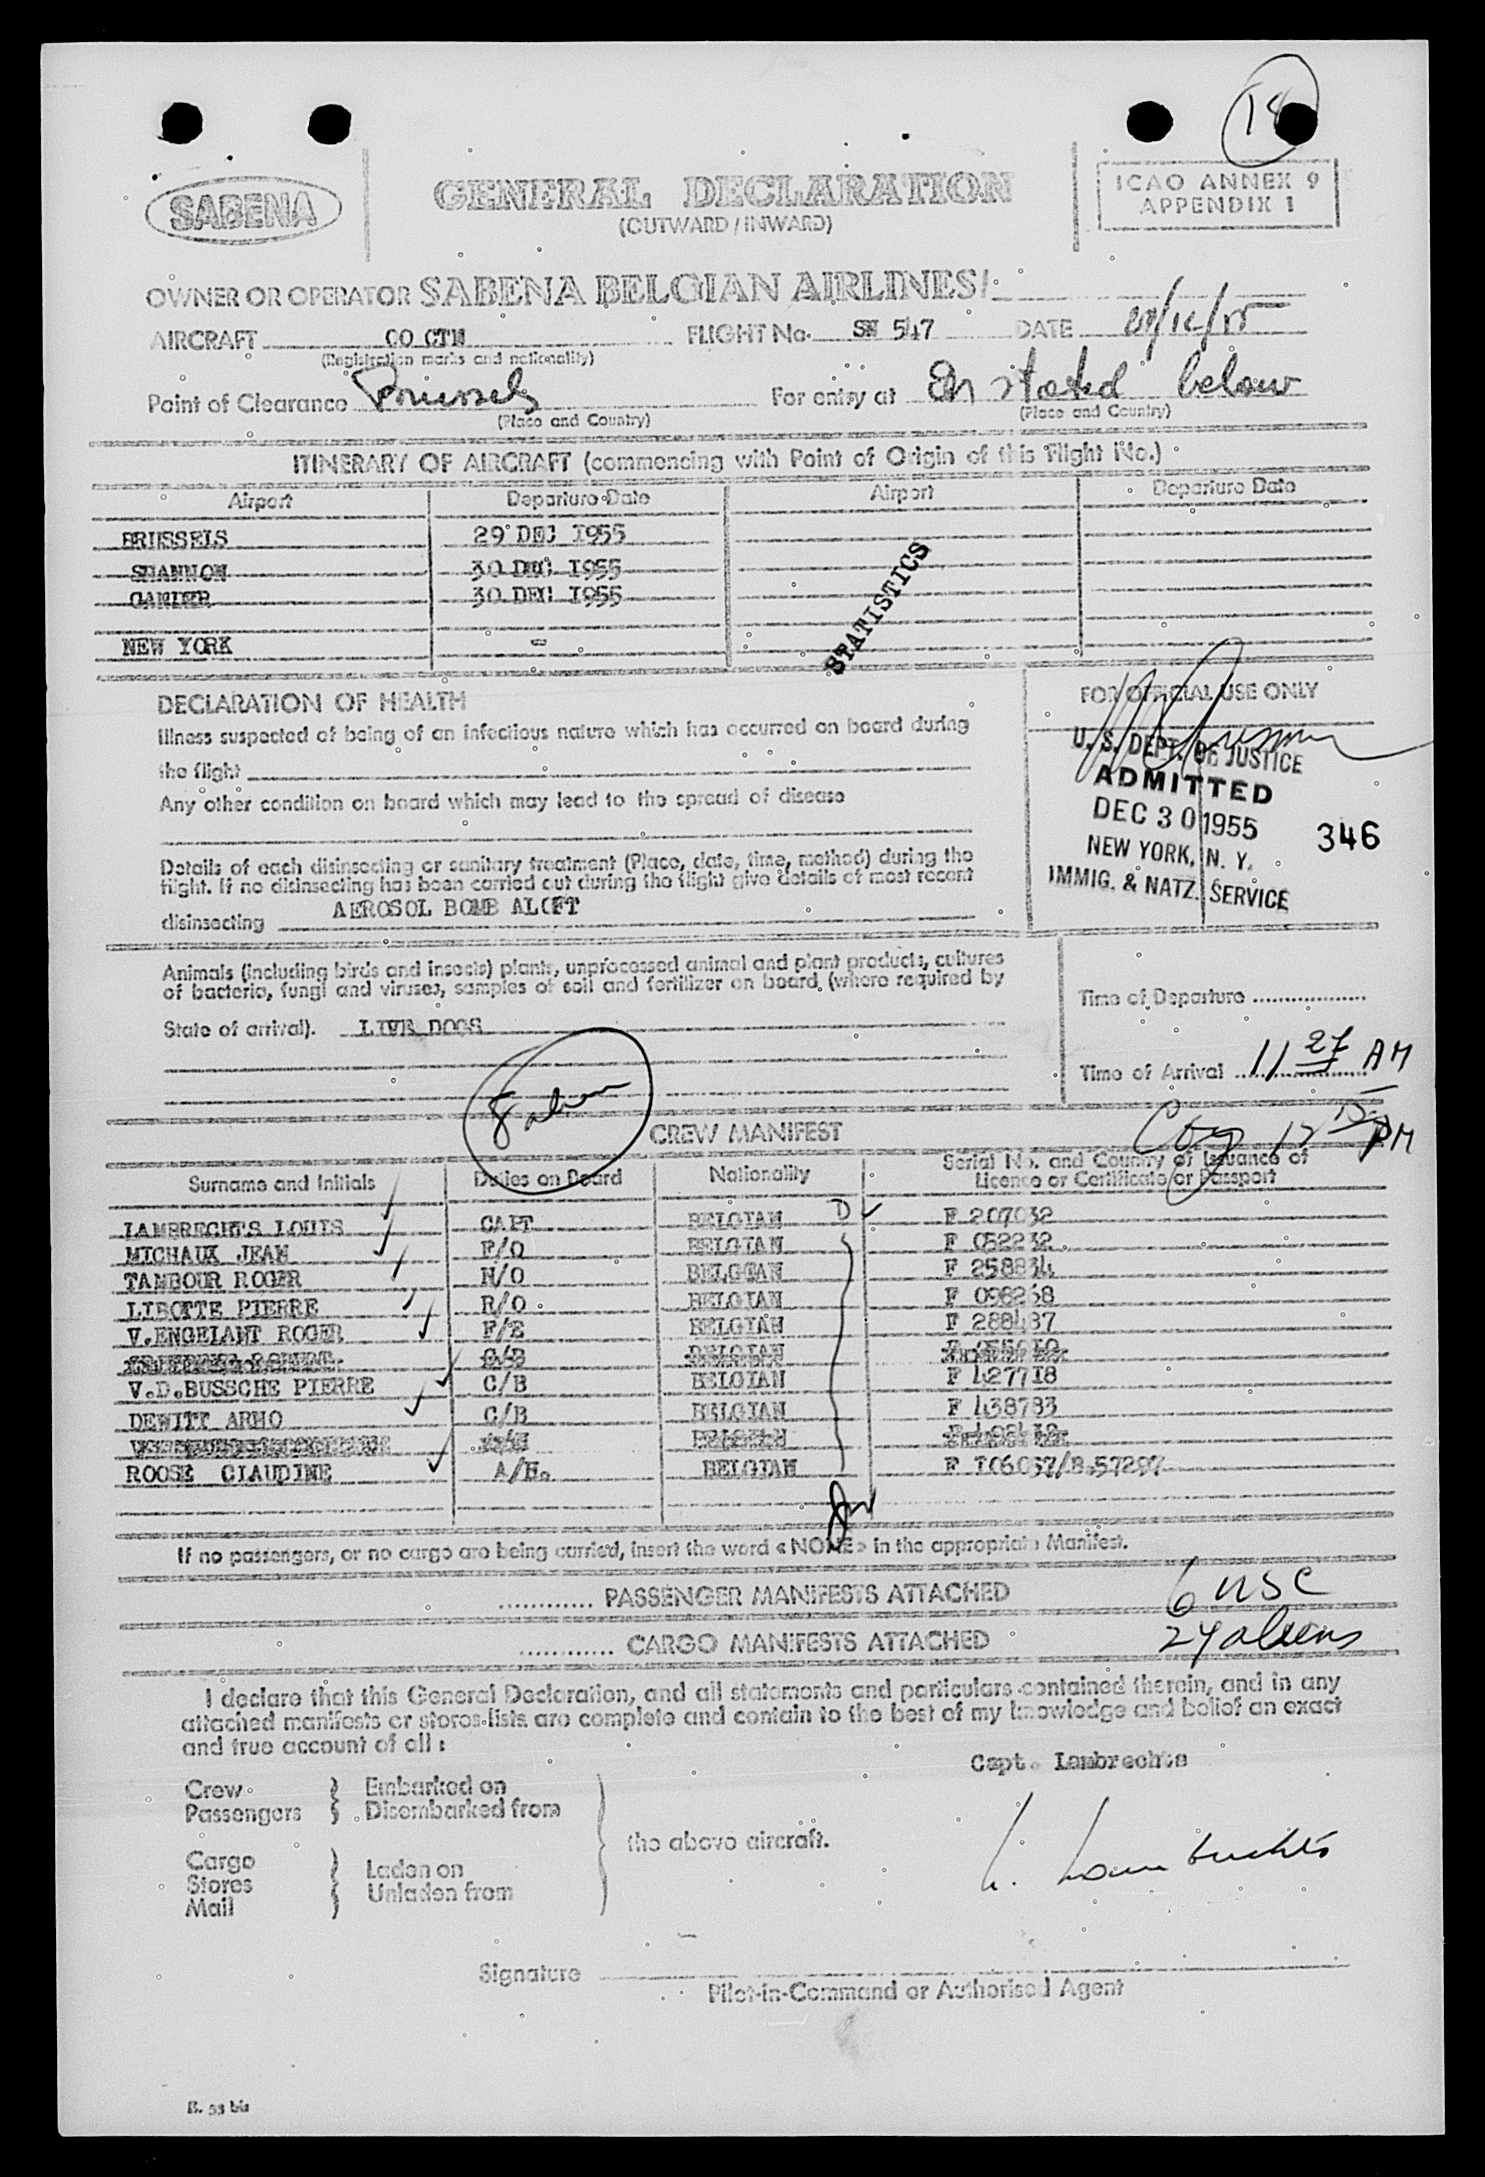 18
SABENA
GENERAL DECLARATION
(OUTWARD / INWARD)
ICAO ANNEX 9
APPENDIX 1
OWNER OR OPERATOR SABENA BELGIAN AIRLINES
AIRCRAFT OO CTN FLIGHT No. SN 547 DATE
(Registration marks and nationality)
Point of Clearance Brussels For entry at as stated below
(Place and Country) (Place and Country)
ITINERARY OF AIRCRAFT (commencing with Point of Origin of this Flight No.)
Airport Departure Date Airport Departure Date
BRUSSELS 29 DEC 1955
SHANNON 30 DEC 1955
GANDER 30 DEC 1955
NEW YORK -
STATISTICS
DECLARATION OF HEALTH
Illness suspected of being of an infectious nature which has occurred on board during
the flight
Any other condition on board which may lead to the spread of disease
Details of each disinsecting or sanitary treatment (Place, date, time, method) during the
flight. If no disinsecting has been carried out during the flight give details of most recent
disinsecting AEROSOL BOMB ALOFT
FOR OFFICIAL USE ONLY
U. S. DEPT. OF JUSTICE
ADMITTED
DEC 30 1955
346
NEW YORK, N. Y.
IMMIG. & NATZ. SERVICE
Animals (including birds and insects) plants, unprocessed animal and plant products, cultures
of bacteria, fungi and viruses, samples of soil and fertilizer on board (where required by
State of arrival). LIVE DOGS
Time of Departure
Time of Arrival 11 27 AM
8 aliens
12 15 PM
CREW MANIFEST
Surname and Initials Duties on Board Nationality Serial No. and Country of Issuance of
Licence or Certificate or Passport
LAMBRECHTS LOUIS CAPT BELGIAN D F 207032
MICHAUX JEAN F/O BELGIAN F 052232
TAMBOUR ROGER N/O BELGIAN F 258834
LIBOTTE PIERRE R/O BELGIAN F 098268
V.ENGELANT ROGER F/E BELGIAN F 288487
V.D.BUSSCHE PIERRE C/B BELGIAN F 427718
DEWITT ARNO C/B BELGIAN F 438783
ROOSE CLAUDINE A/H. BELGIAN F 106067/B.57297
If no passengers, or no cargo are being carried, insert the word « NONE » in the appropriate Manifest.
PASSENGER MANIFESTS ATTACHED
6 USC
CARGO MANIFESTS ATTACHED
24 aliens
I declare that this General Declaration, and all statements and particulars contained therein, and in any
attached manifests or stores lists are complete and contain to the best of my knowledge and belief an exact
and true account of all :
Capt. Lambrechts
Crew } Embarked on
Passengers } Disembarked from
the above aircraft.
Cargo } Laden on
Stores } Unladen from
Mail
L. Lambrechts
Signature
Pilot-in-Command or Authorised Agent
R. 53 bis